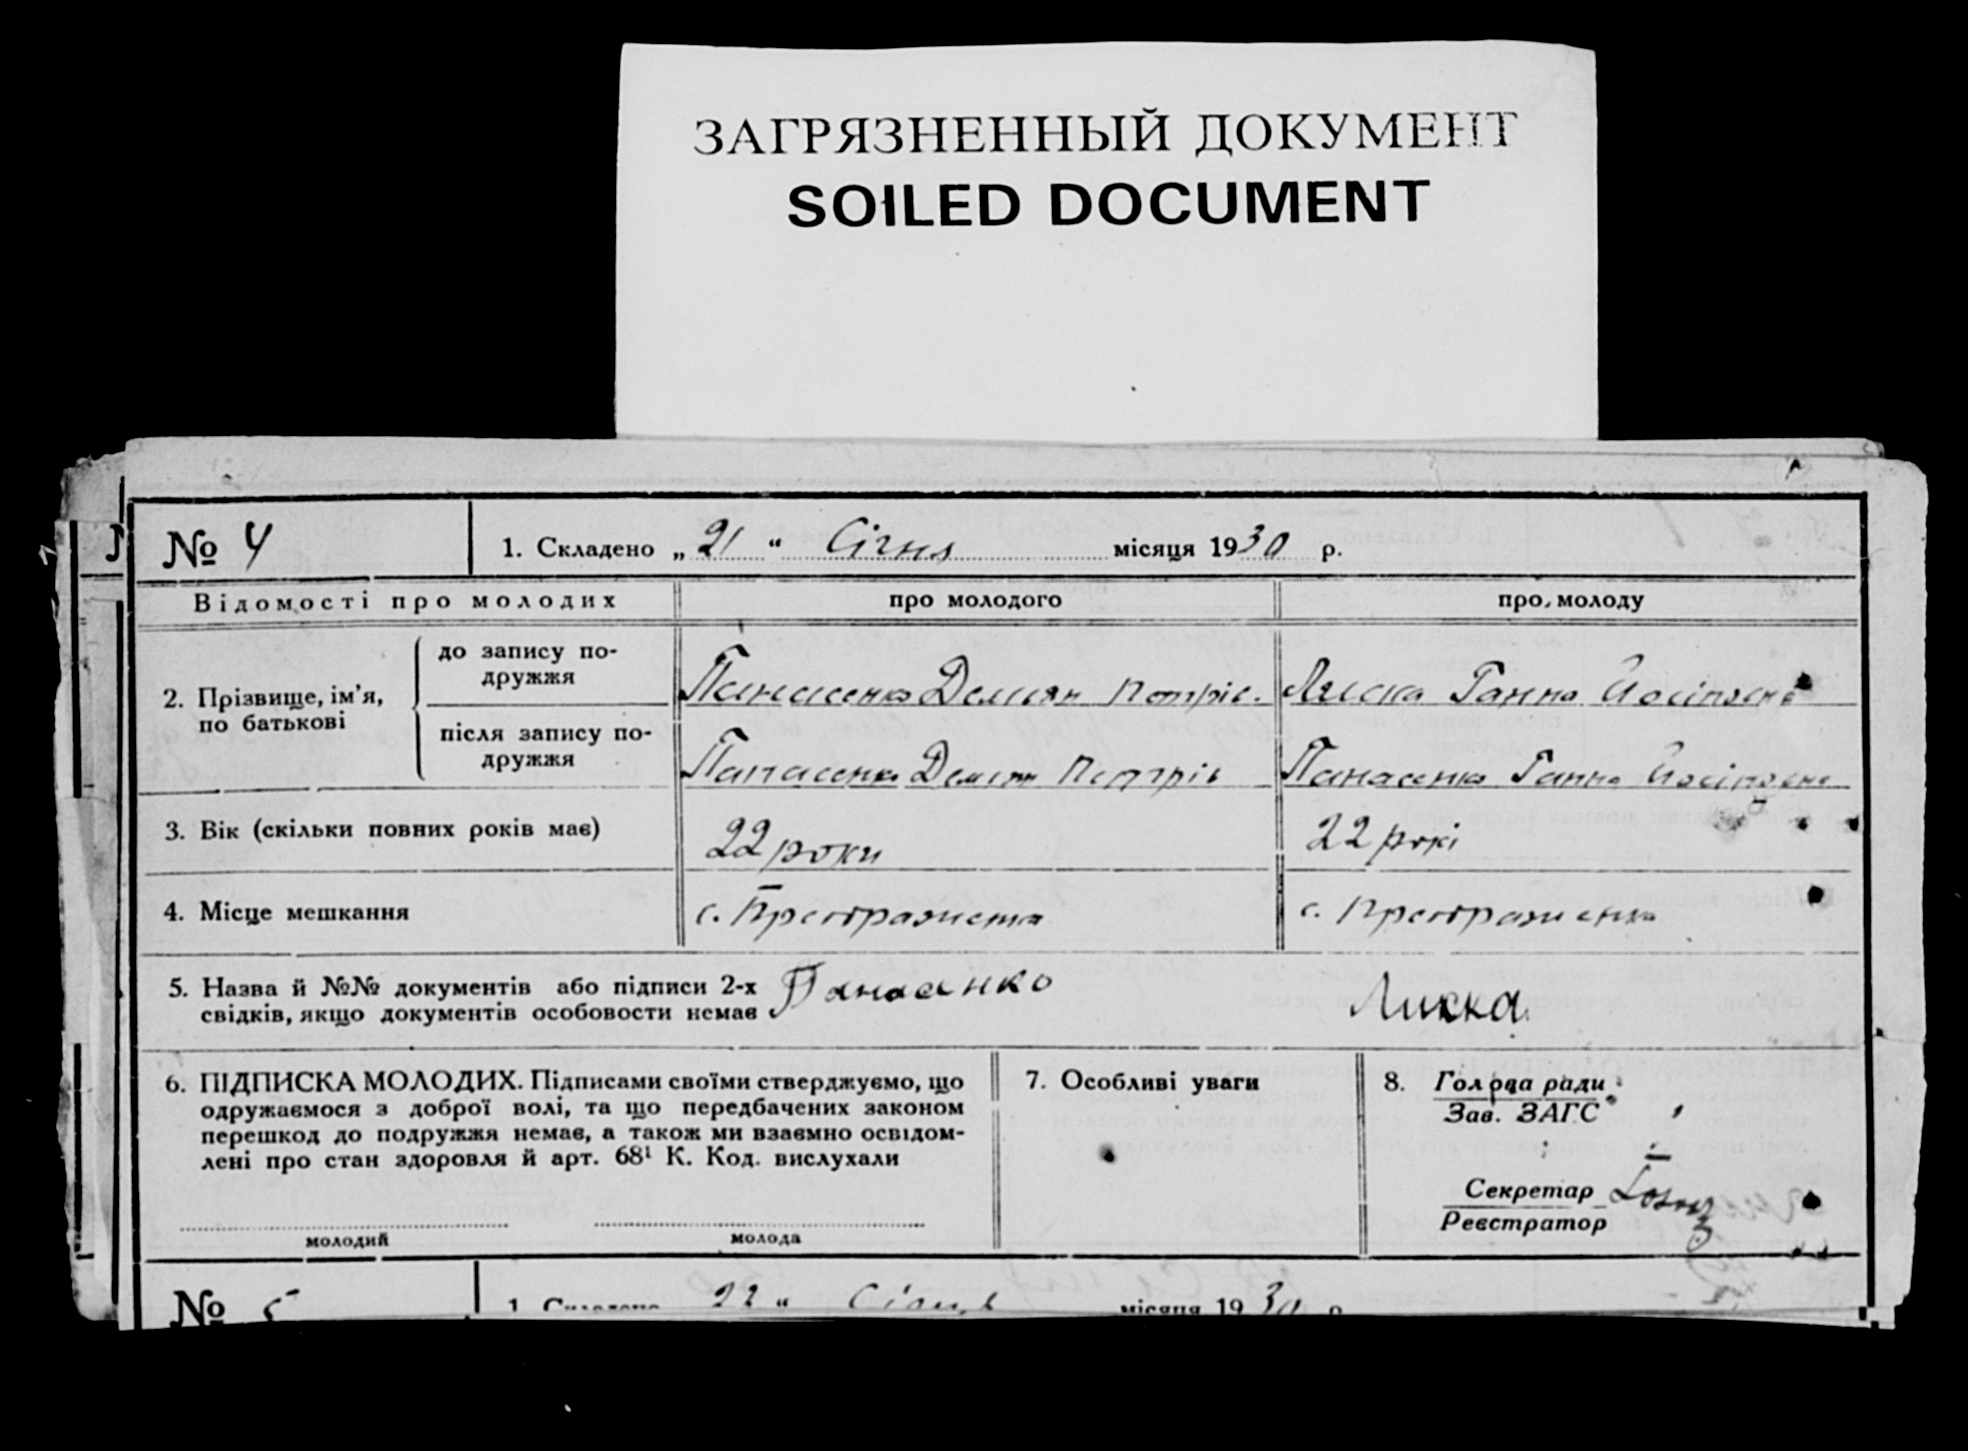 ЗАГРЯЗНЕННЫЙ ДОКУМЕНТ
SOILED DOCUMENT
№ 4
1. Складено „ 21 “ Січня місяця 1930 р.
Відомості про молодих
про молодого
про молоду
2. Прізвище, ім’я, по батькові
до запису подружжя
Панасенко Демян Петрів.
Лиска Ганна Йосіповна
після запису подружжя
Панасенко Демян Петрів
Панасенко Ганна Йосіповна
3. Вік (скільки повних років має)
22 роки
22 рокі
4. Місце мешкання
с.
с.
5. Назва й №№ документів або підписи 2-х
свідків, якщо документів особовости немає
Панасенко
Лиска
6. ПІДПИСКА МОЛОДИХ. Підписами своїми стверджуємо, що
одружаємося з доброї волі, та що передбачених законом
перешкод до подружжя немає, а також ми взаємно освідом-
лені про стан здоровля й арт. 68¹ К. Код. вислухали
молодий
молода
7. Особливі уваги
8. Голова ради
Зав. ЗАГС
Секретар
Реєстратор
№ 5
1. Складено 22 “ місяця 1930 р.